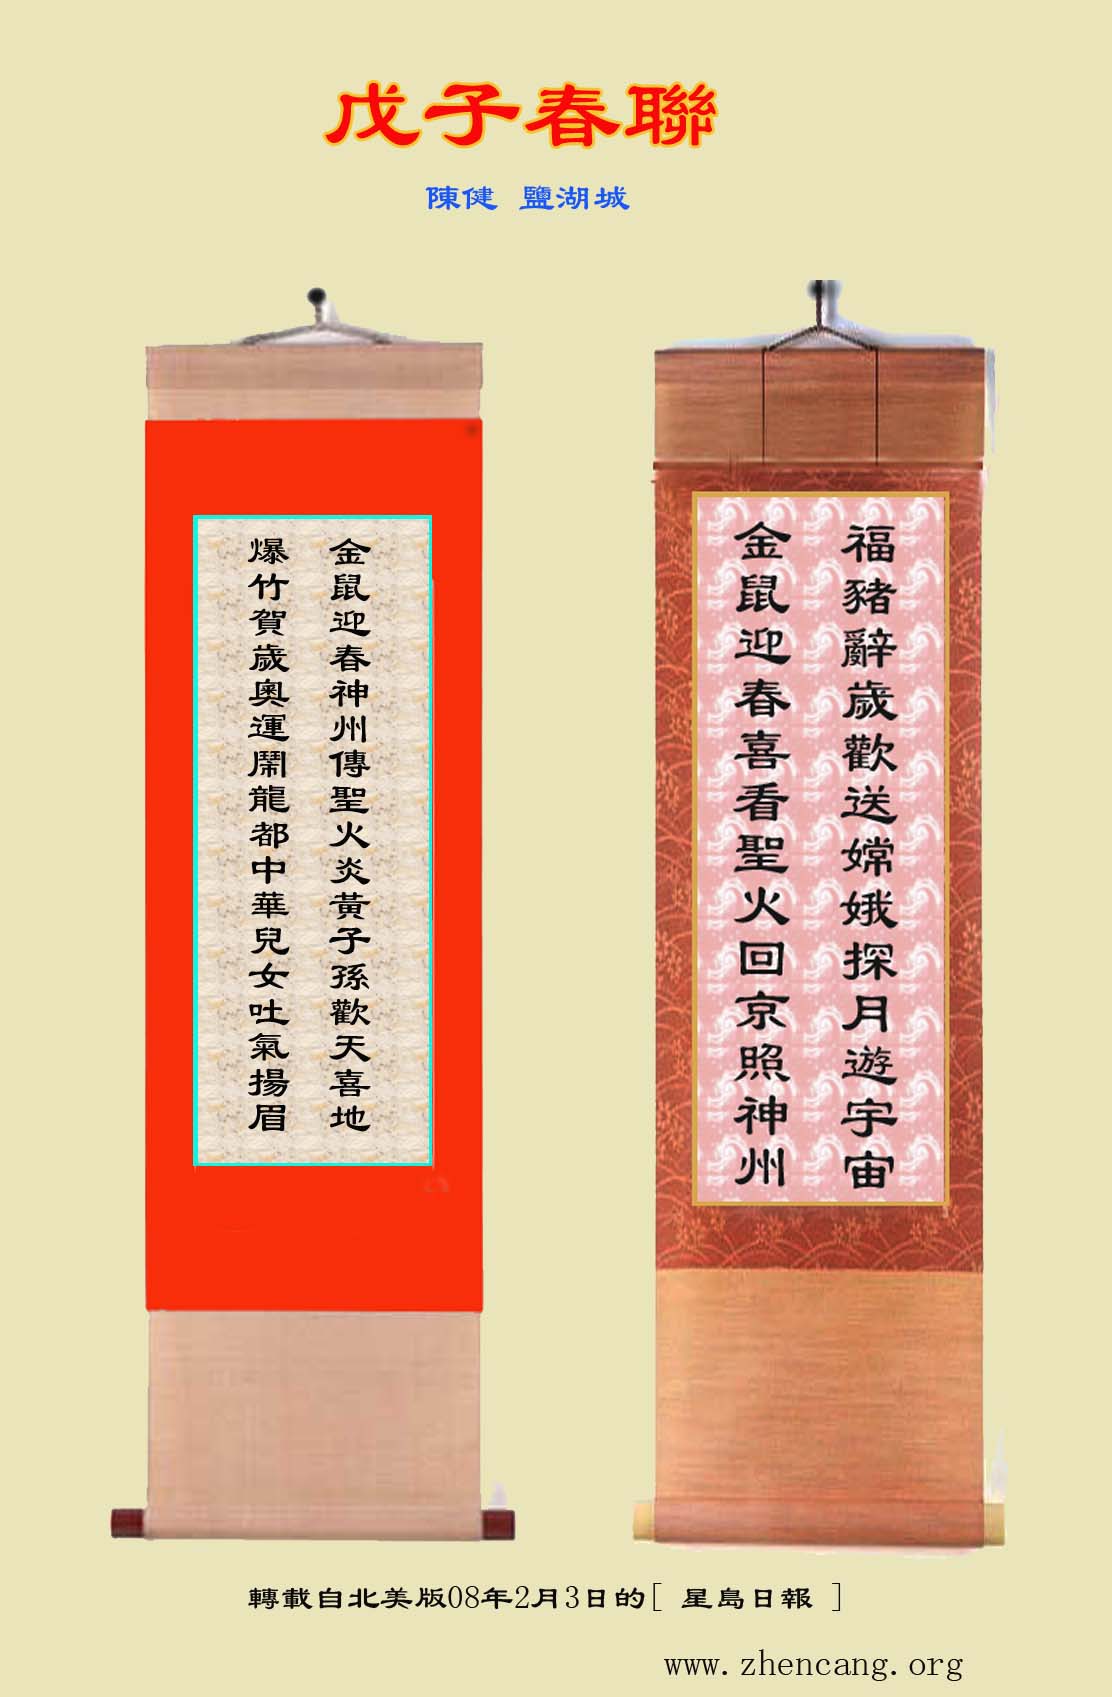 戊子春聯
陳健 鹽湖城
福豬辭歲歡送嫦娥探月遊宇宙
金鼠迎春喜看聖火回京照神州
金鼠迎春神州傳聖火炎黃子孫歡天喜地
爆竹賀歲奧運鬧龍都中華兒女吐氣揚眉
轉載自北美版08年2月3日的[ 星島日報 ]
www.zhencang.org